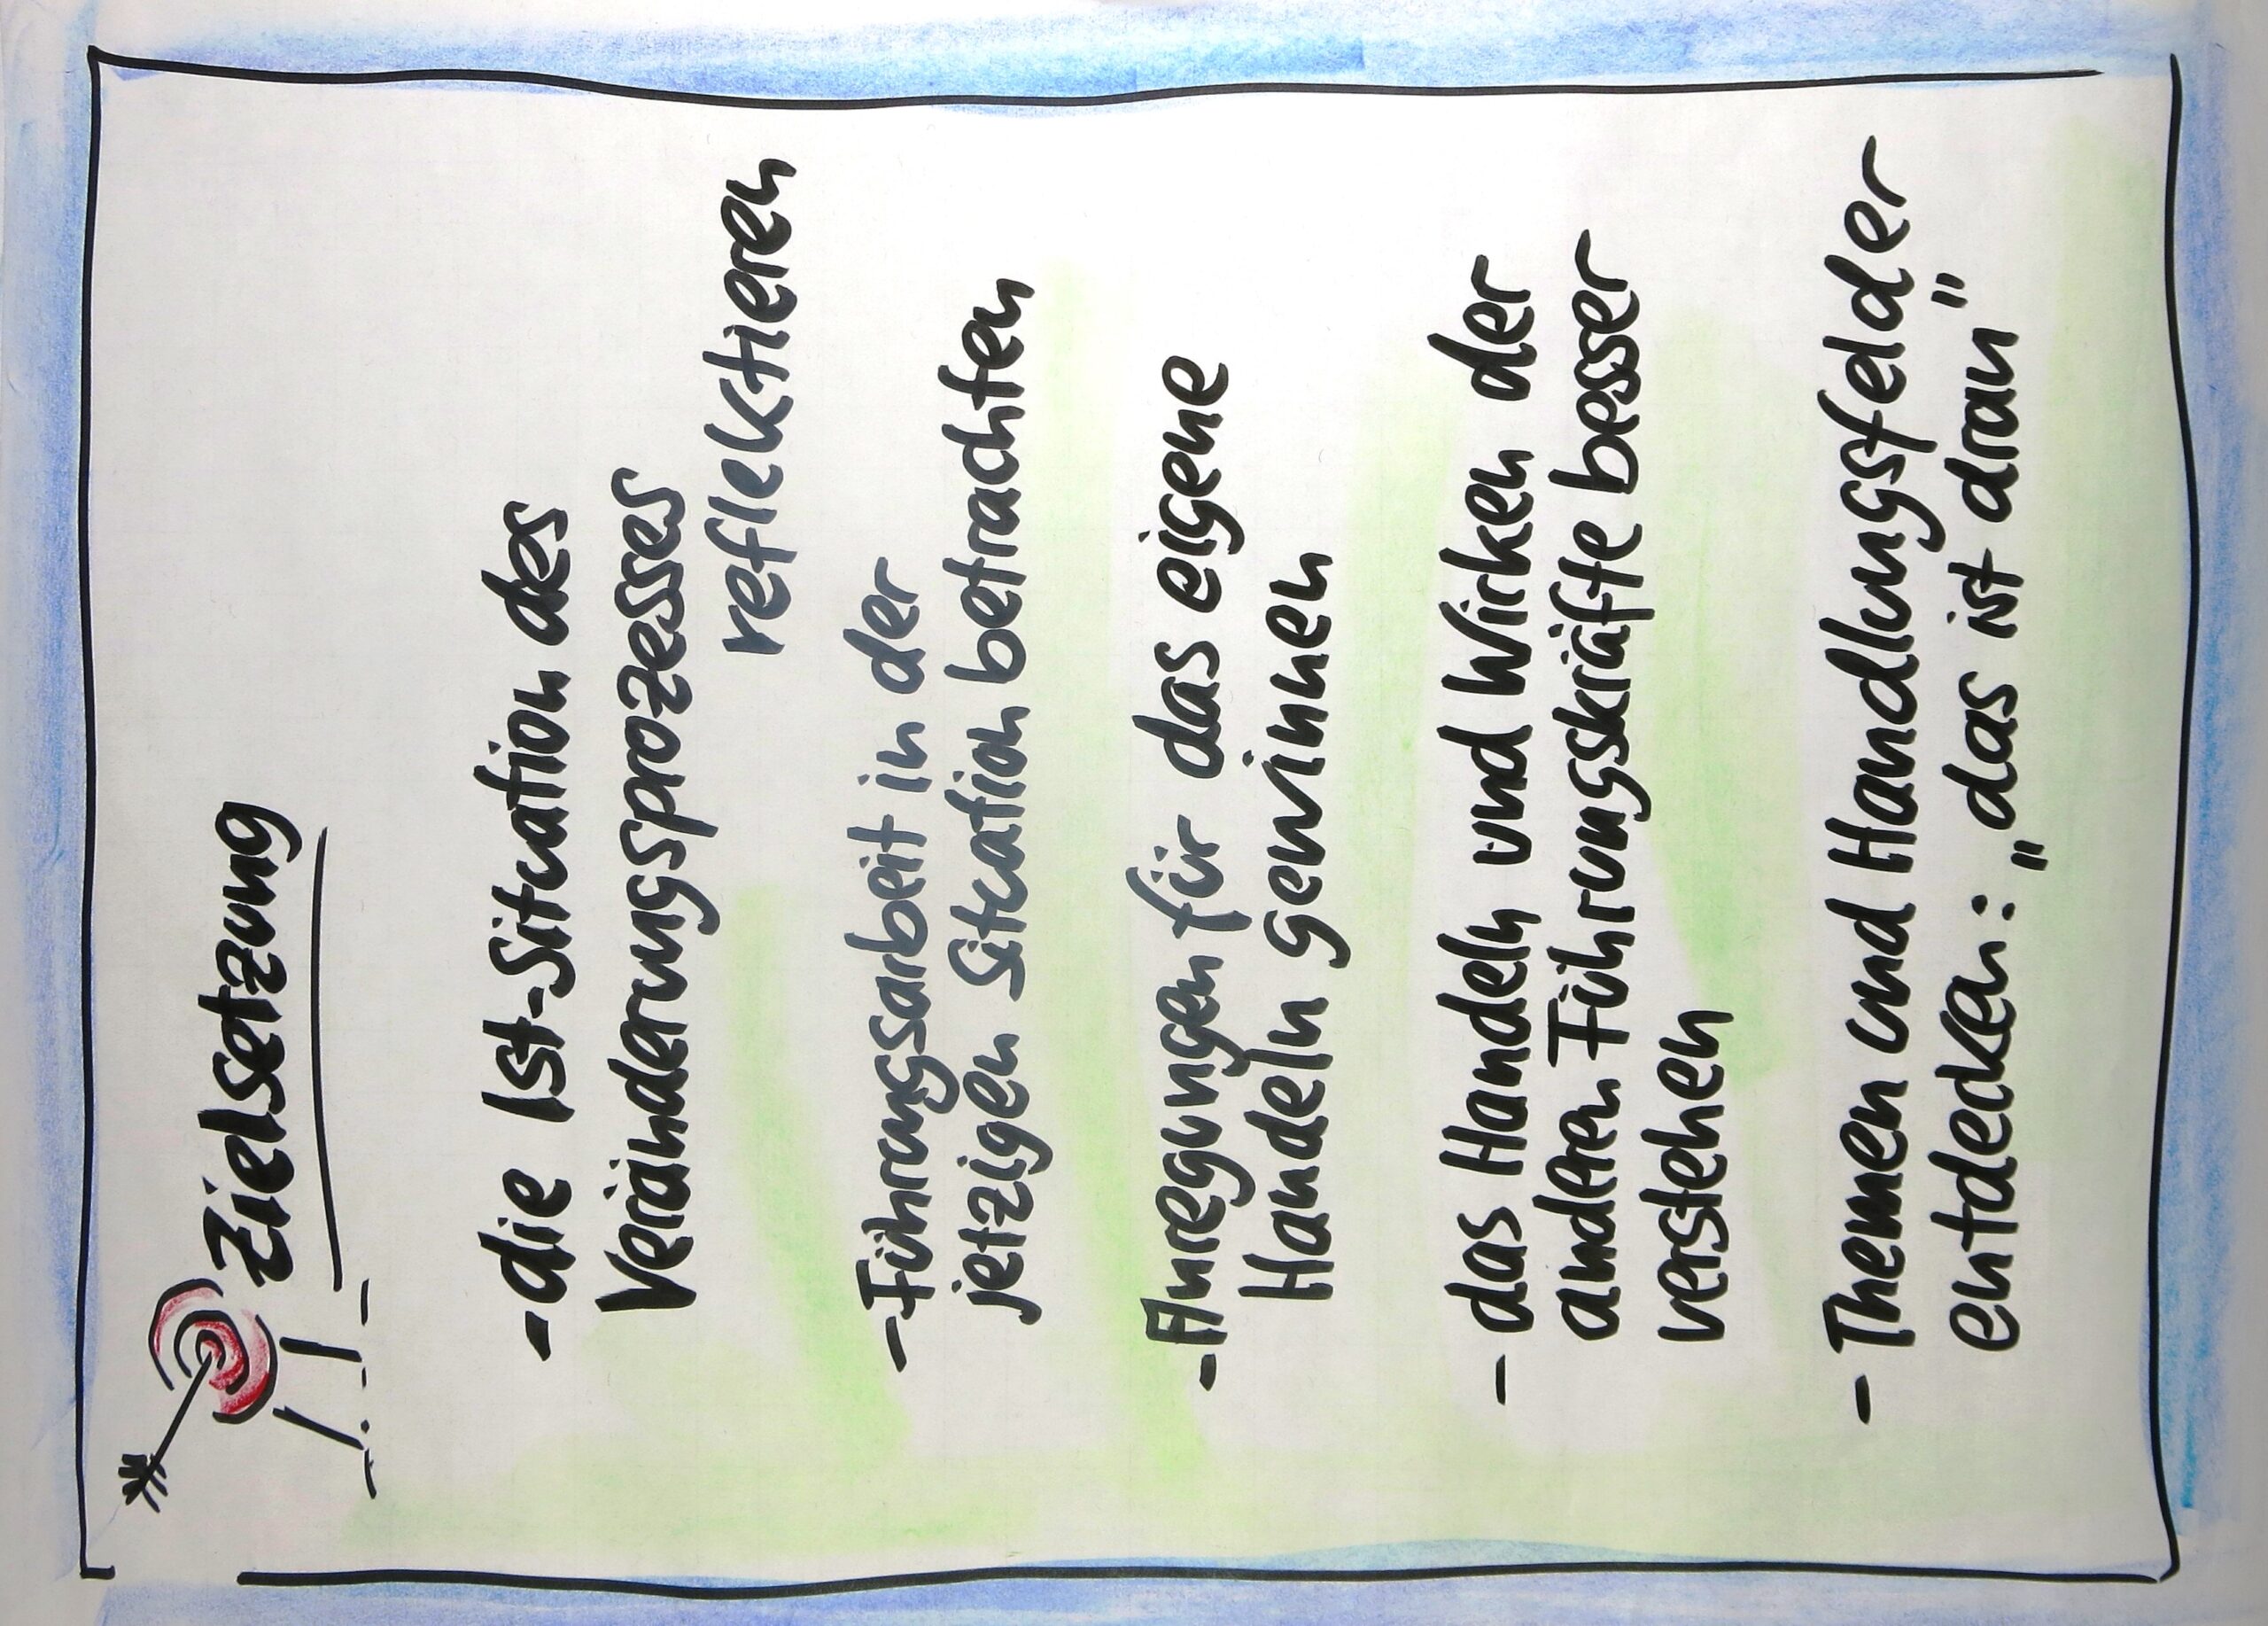 Zielsetzung
- die Ist-Situation des
Veränderungsprozesses
reflektieren
- Führungsarbeit in der
jetzigen Situation betrachten
- Anregungen für das eigene
Handeln gewinnen
- das Handeln und Wirken der
anderen Führungskräfte besser
verstehen
- Themen und Handlungsfelder
entdecken: „das ist dran"